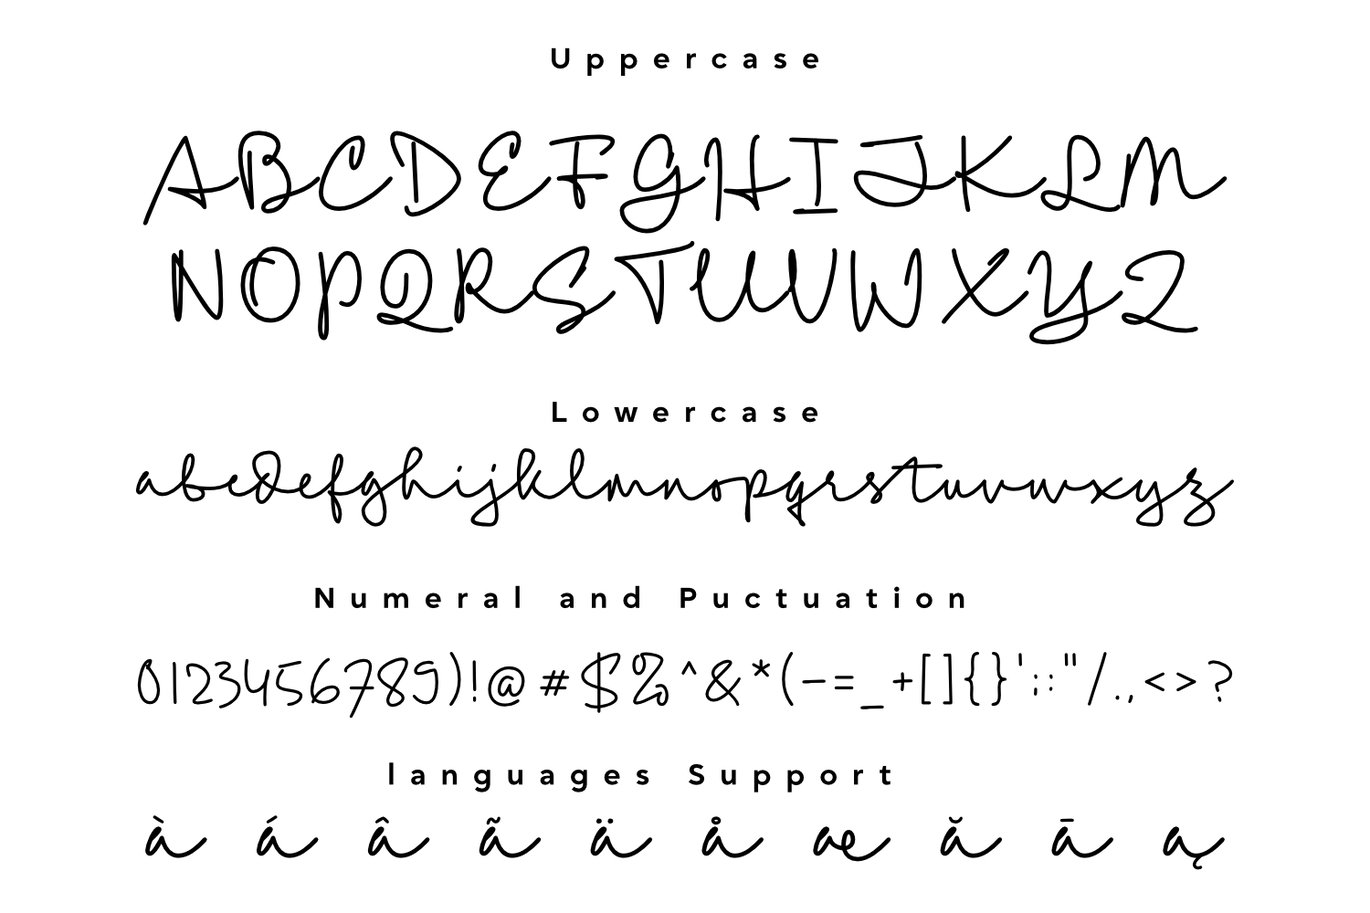 Uppercase
ABCDEFGHIJKLM
NOPQRSTUVWXYZ
Lowercase
abcdefghijklmnopqrstuvwxyz
Numeral and Puctuation
0123456789)!@#$%^&*(-=_+[]{}';:"/.,<>?
languages Support
à á â ã ä å æ ă ā ą